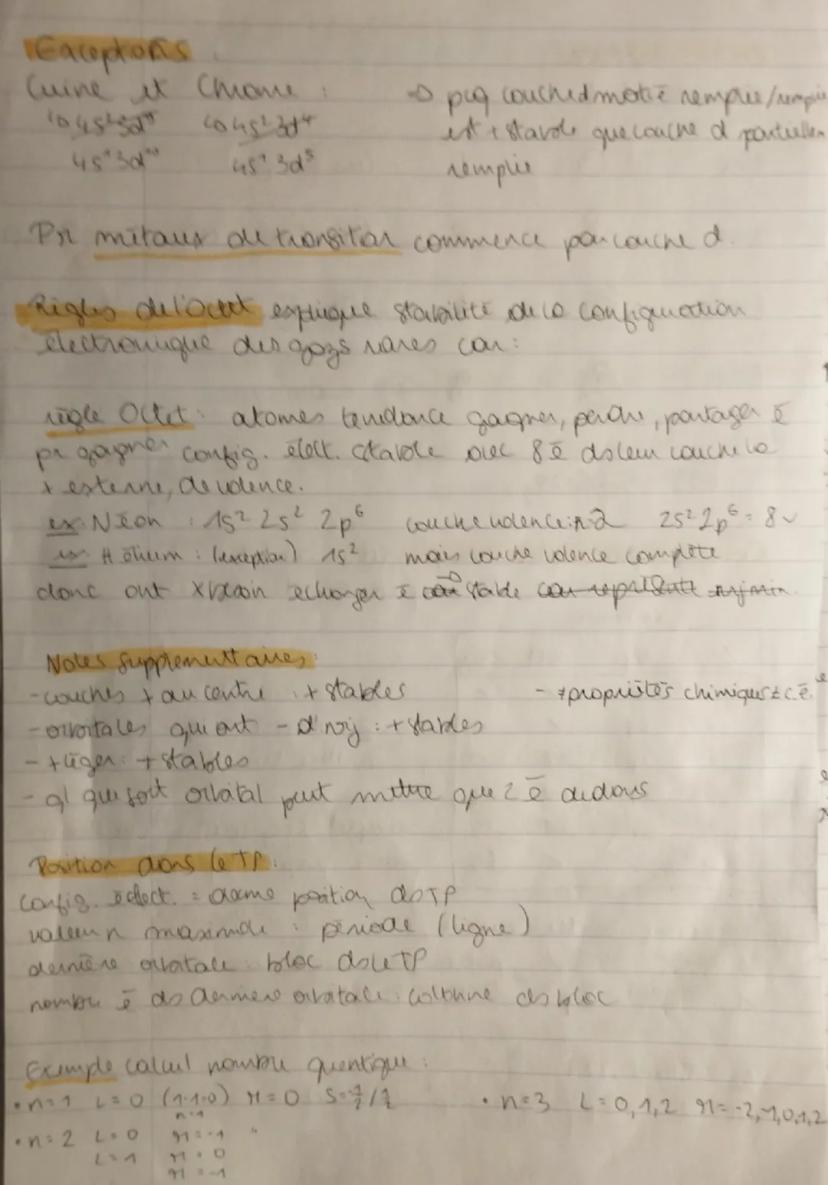 Exceptions
Cuivre et Chrome :
→ pcq couche d moitié remplie/remplie
est + stable que couche d partiellem
remplie
4s² 3d⁹ 4s² 3d⁴
4s¹ 3d¹⁰ 4s¹ 3d⁵
Pr métaux de transition commence par couche d.
Règles de l'octet explique stabilité de la configuration
électronique des gazs rares car :
règle Octet : atomes tendance gagner, perdre, partager ē
pr gagner config. élect. stable avec 8 ē ds leur couche la
+ externe, de valence.
ex: Néon : 1s² 2s² 2p⁶ couche valence : n=2 2s² 2p⁶ = 8 ✓
ex: Hélium : (exception) 1s² mais couche valence complète
donc ont × besoin échanger ē → stable
Notes supplémentaires :
- couches + au centre : + stables
- ≠ propriétés chimiques ≠ c ē
- orbitales qui ont - d'nrj : + stables
- + léger : + stables
- ql que soit orbital peut mettre que 2 ē dedans
Position dans le TP :
config. élect. = donne position ds TP
valeur n maximale : période (ligne)
dernière orbitale : bloc ds le TP
nombre ē ds dernière orbitale : colonne ds bloc
Exemple calcul nombre quantique :
• n=1 L=0 (1-1=0) M=0 S=-½/½
• n=3 L=0,1,2 M=-2,-1,0,1,2
n-1
• n=2 L=0 M=-1 "
L=1 M=0
M=-1